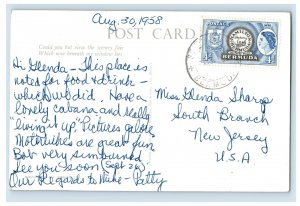 Aug. 30, 1958
POST CARD
Could you but view the scenery fair
Which now beneath my window lies
Hi Glenda - This place is
noted for food & drink -
which we did. Have a
lovely cabana and really
"living it up". Pictures galore
Motorbikes are great fun
Bob very sunburned
See you soon (Sept 2)
Our Regards to Mike - Patty
POSTAGE
BERMUDA
Miss Glenda Sharp
South Branch
New Jersey
U.S.A